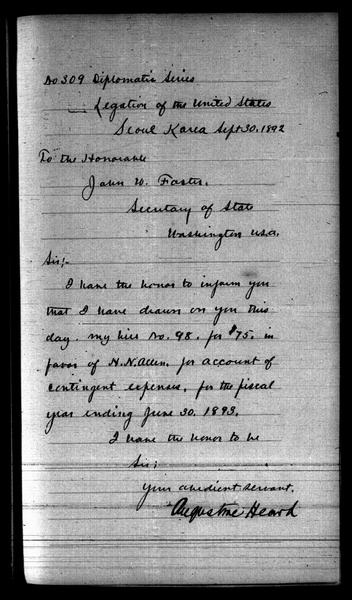 No 309 Diplomatic Series
Legation of the United States
Seoul Korea Sept 30. 1892
To the Honorable
John W. Foster.
Secretary of State
Washington U.S.A.
Sir;-
I have the honor to inform you
that I have drawn on you this
day. my bill No. 98. for $75. in
favor of H. N. Allen. for account of
contingent expenses, for the fiscal
year ending June 30. 1893.
I have the honor to be
Sir;
Your obedient servant.
Augustine Heard